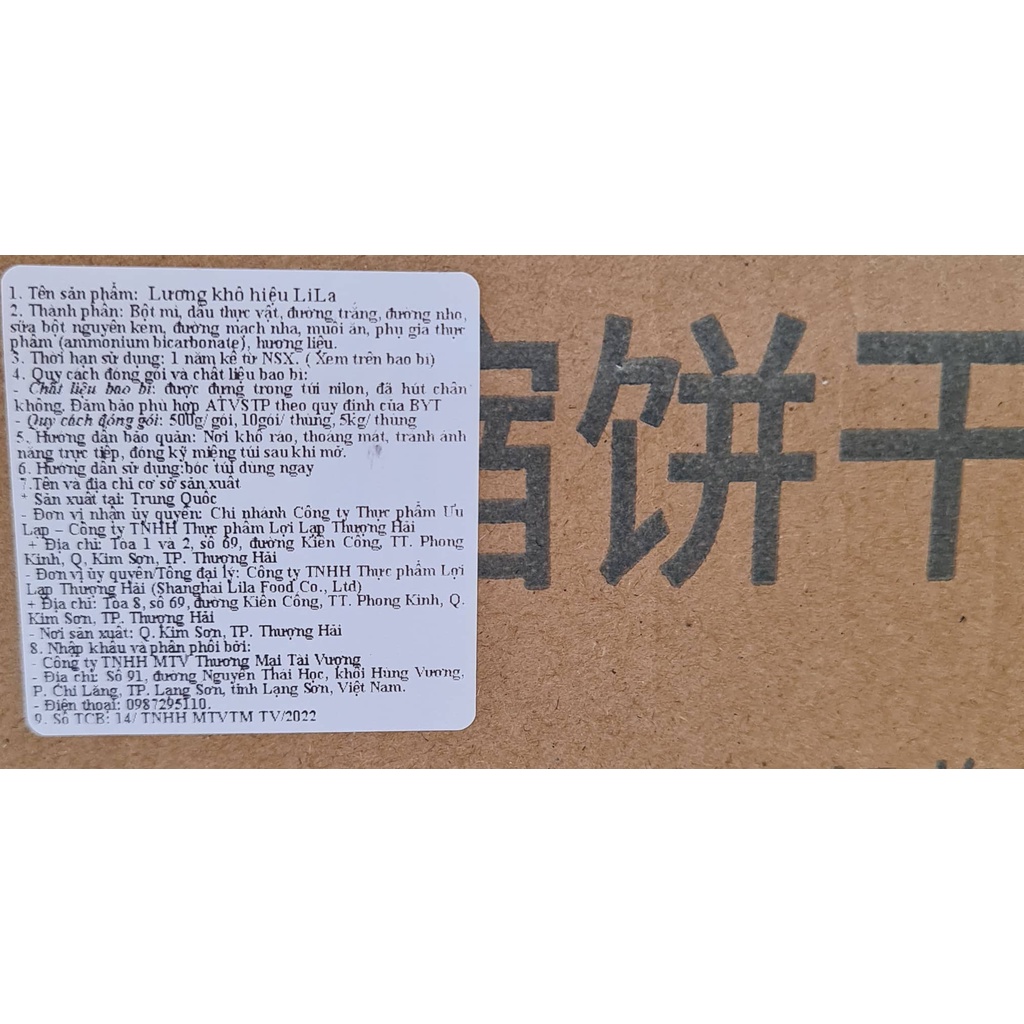 1. Tên sản phẩm: Lương khô hiệu LiLa
2. Thành phần: Bột mì, dầu thực vật, đường trắng, đường nho,
sữa bột nguyên kem, đường mạch nha, muối ăn, phụ gia thực
phẩm (ammonium bicarbonate), hương liệu.
3. Thời hạn sử dụng: 1 năm kể từ NSX. ( Xem trên bao bì)
4. Quy cách đóng gói và chất liệu bao bì:
- Chất liệu bao bì: được đựng trong túi nilon, đã hút chân
không. Đảm bảo phù hợp ATVSTP theo quy định của BYT
- Quy cách đóng gói: 500g/ gói, 10gói/ thùng, 5kg/ thùng
5. Hướng dẫn bảo quản: Nơi khô ráo, thoáng mát, tránh ánh
nắng trực tiếp, đóng kỹ miệng túi sau khi mở.
6. Hướng dẫn sử dụng:bóc túi dùng ngay
7.Tên và địa chỉ cơ sở sản xuất
+ Sản xuất tại: Trung Quốc
- Đơn vị nhận ủy quyền: Chi nhánh Công ty Thực phẩm Ưu
Lạp – Công ty TNHH Thực phẩm Lợi Lạp Thượng Hải
+ Địa chỉ: Tòa 1 và 2, số 69, đường Kiến Công, TT. Phong
Kinh, Q, Kim Sơn, TP. Thượng Hải
- Đơn vị ủy quyền/Tổng đại lý: Công ty TNHH Thực phẩm Lợi
Lạp Thượng Hải (Shanghai Lila Food Co., Ltd)
+ Địa chỉ: Tòa 8, số 69, đường Kiến Công, TT. Phong Kinh, Q.
Kim Sơn, TP. Thượng Hải
- Nơi sản xuất: Q. Kim Sơn, TP. Thượng Hải
8. Nhập khẩu và phân phối bởi:
- Công ty TNHH MTV Thương Mại Tài Vượng
- Địa chỉ: Số 91, đường Nguyễn Thái Học, khối Hùng Vương,
P. Chi Lăng, TP. Lạng Sơn, tỉnh Lạng Sơn, Việt Nam.
- Điện thoại: 0987295110.
9. Số TCB: 14/ TNHH MTVTM TV/2022
饼干